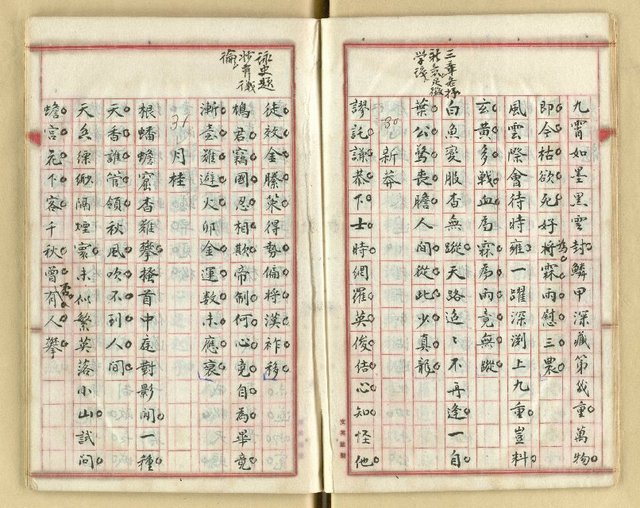 三章各抒
新氣足徵
學後
九霄如墨黑雲封鱗甲深藏第幾重萬物
即今枯欲死好將霖雨慰三農
為
風雲際會待時雍一躍深淵上九重豈料
玄黃多戰血為霖為雨竟無蹤
白魚變服杳無蹤天路迢〻不再逢一自
葉公驚喪膽人間從此少真龍
30 新莽
謬託謙恭下士時網羅英俊結心知怪他
詠史題
倫
徒效金縢策得勢偏將漢祚移
鳩君竊國忍相欺帝制何心竟自為畢竟
漸臺難避火卯金運數未應衰
31 月桂
根蟠蟾窟杳難攀搔首中庭對影閒一種
天香誰管領秋風吹不到人間
天島縹緲隔煙寰未似繁英落小山試問
蟾宮花下客千秋曾有人攀
否